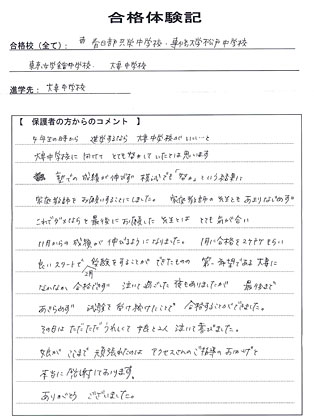 合格体験記
合格校(全て): 春日部共栄中学校・専修大学松戸中学校
東京 学館中学校、大妻中学校
進学先: 大妻中学校
【 保護者の方からのコメント 】
4年生の時から 進学するなら 大妻中学校がいい…と
大妻中学校に 向けて とても 努力して いたとは思います
塾での成績が伸びず 模試でも「 」という結果に
家庭教師を お願いすることにしました。 家庭教師の先生とも あまりなじめず
これでダメならと最後にお願いした 先生とは とても 気が合い
11月からの成績が伸びるようになりました。 1月に合格を もらい
良いスタートで 2月受験をすることができたものの 第一希望である大妻に
なかなか 合格できず 泣いて過ごした 夜もありましたが 最後まで
あきらめず 試験を受け続けたことで 合格することができました。
その日は ただただうれしくて 娘と二人 泣いて喜びました。
娘が ここまで 頑張れたのは アクセスさんのご指導の おかげと
本当に 感謝しております。
ありがとう ございました。